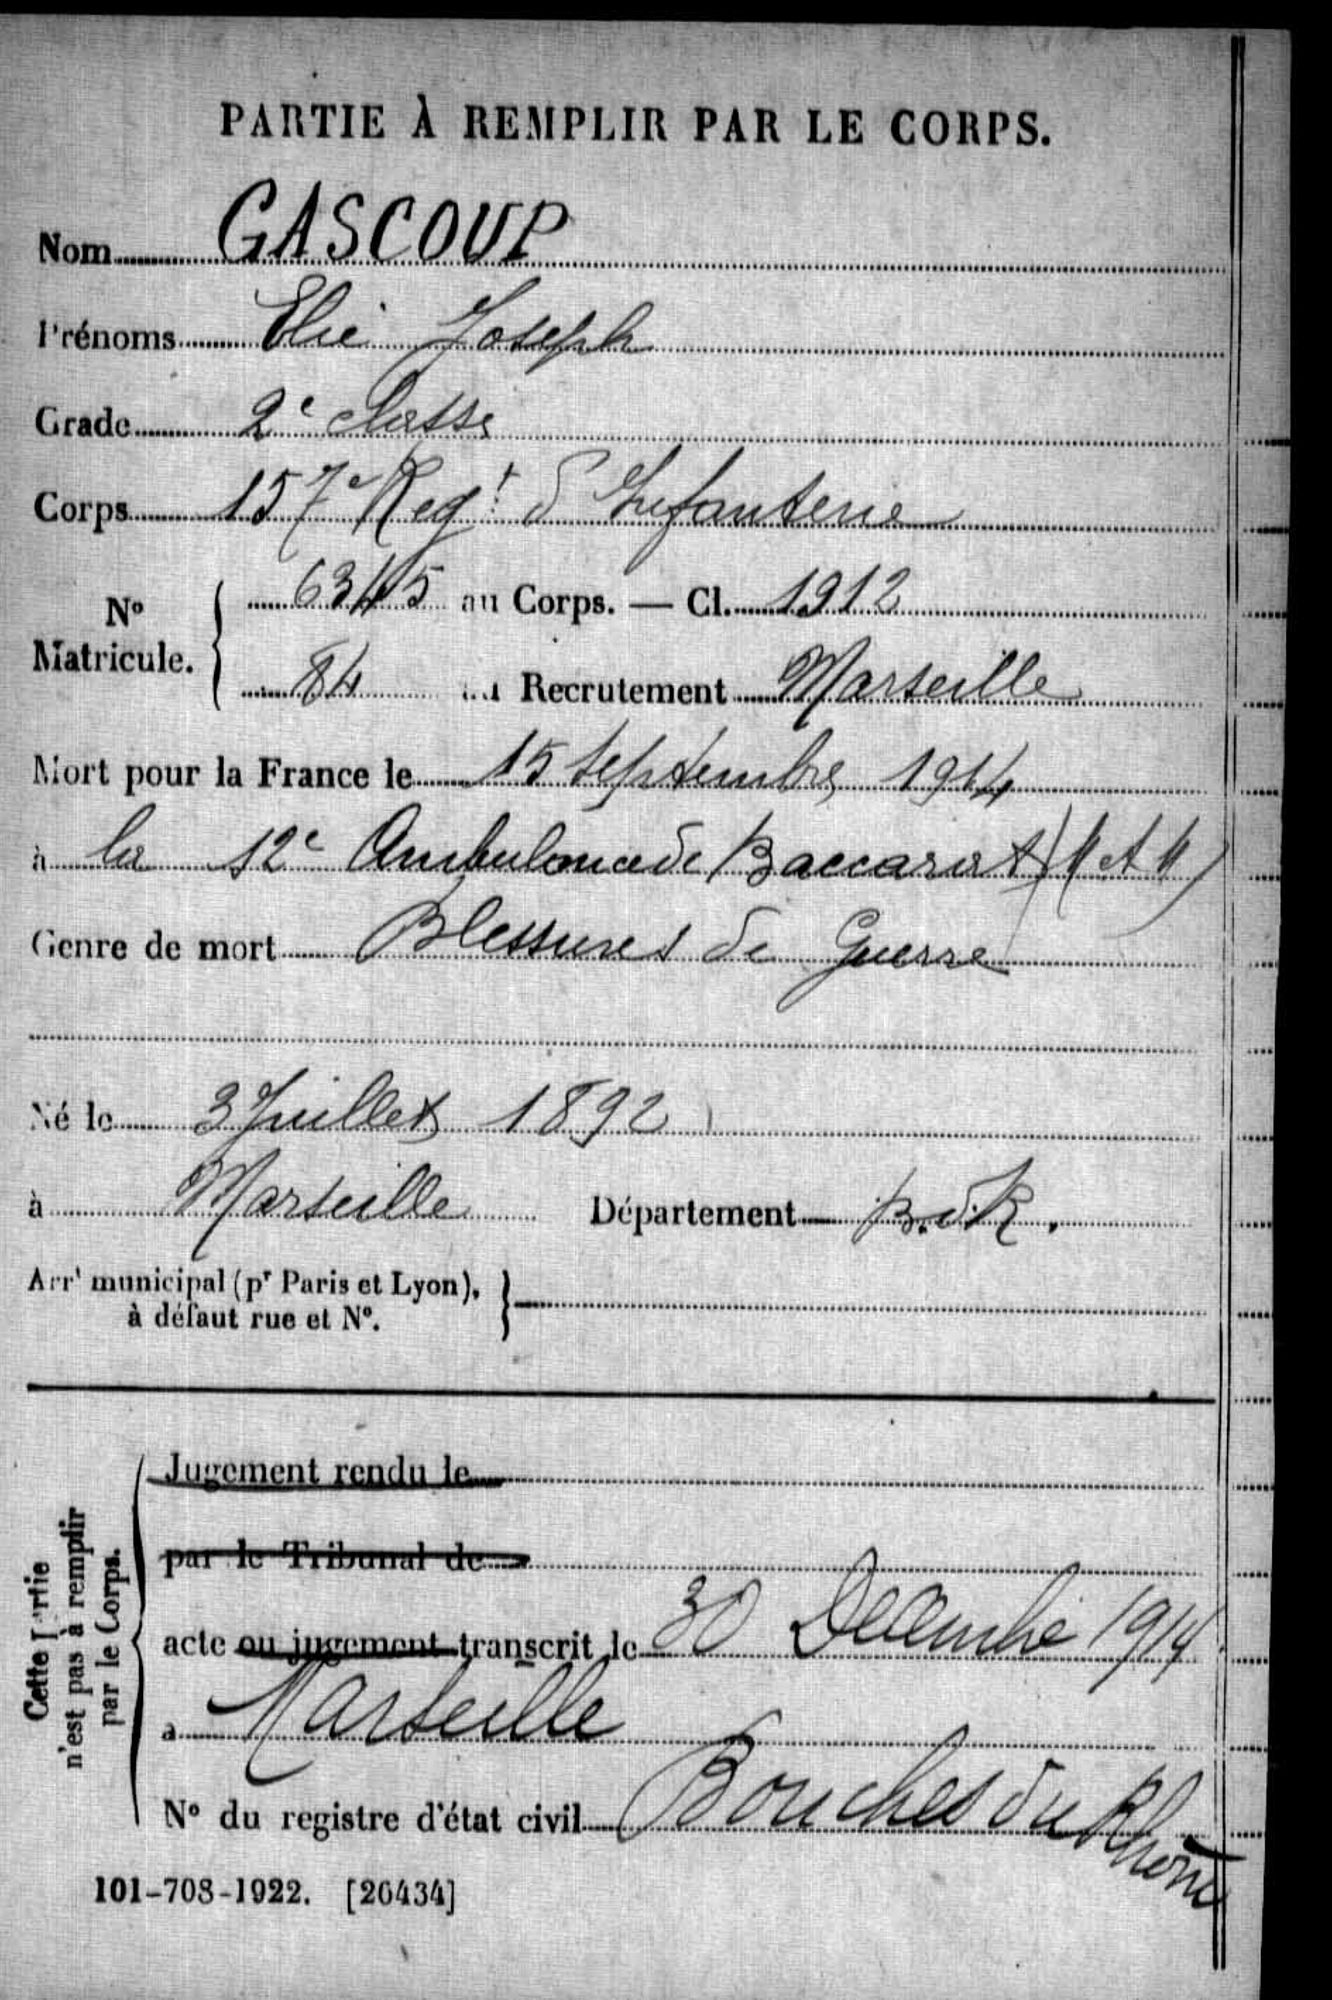 PARTIE À REMPLIR PAR LE CORPS.
Nom GASCOUP
Prénoms Elie Joseph
Grade 2e classe
Corps 157e Regt d'Infanterie
No Matricule. { 6345 au Corps. — Cl. 1912
84 au Recrutement Marseille
Mort pour la France le 15 Septembre 1914
à la 12e Ambulance de Baccarat (M et M)
Genre de mort Blessures de Guerre
Né le 3 Juillet 1892
à Marseille Département B.d.R.
Arrt municipal (pr Paris et Lyon),
à défaut rue et No. }
Cette Partie
n'est pas à remplir
par le Corps.
Jugement rendu le
par le Tribunal de
acte ou jugement transcrit le 30 Decembre 1914
a Marseille
No du registre d'état civil Bouches du Rhône
101-708-1922. [26434]